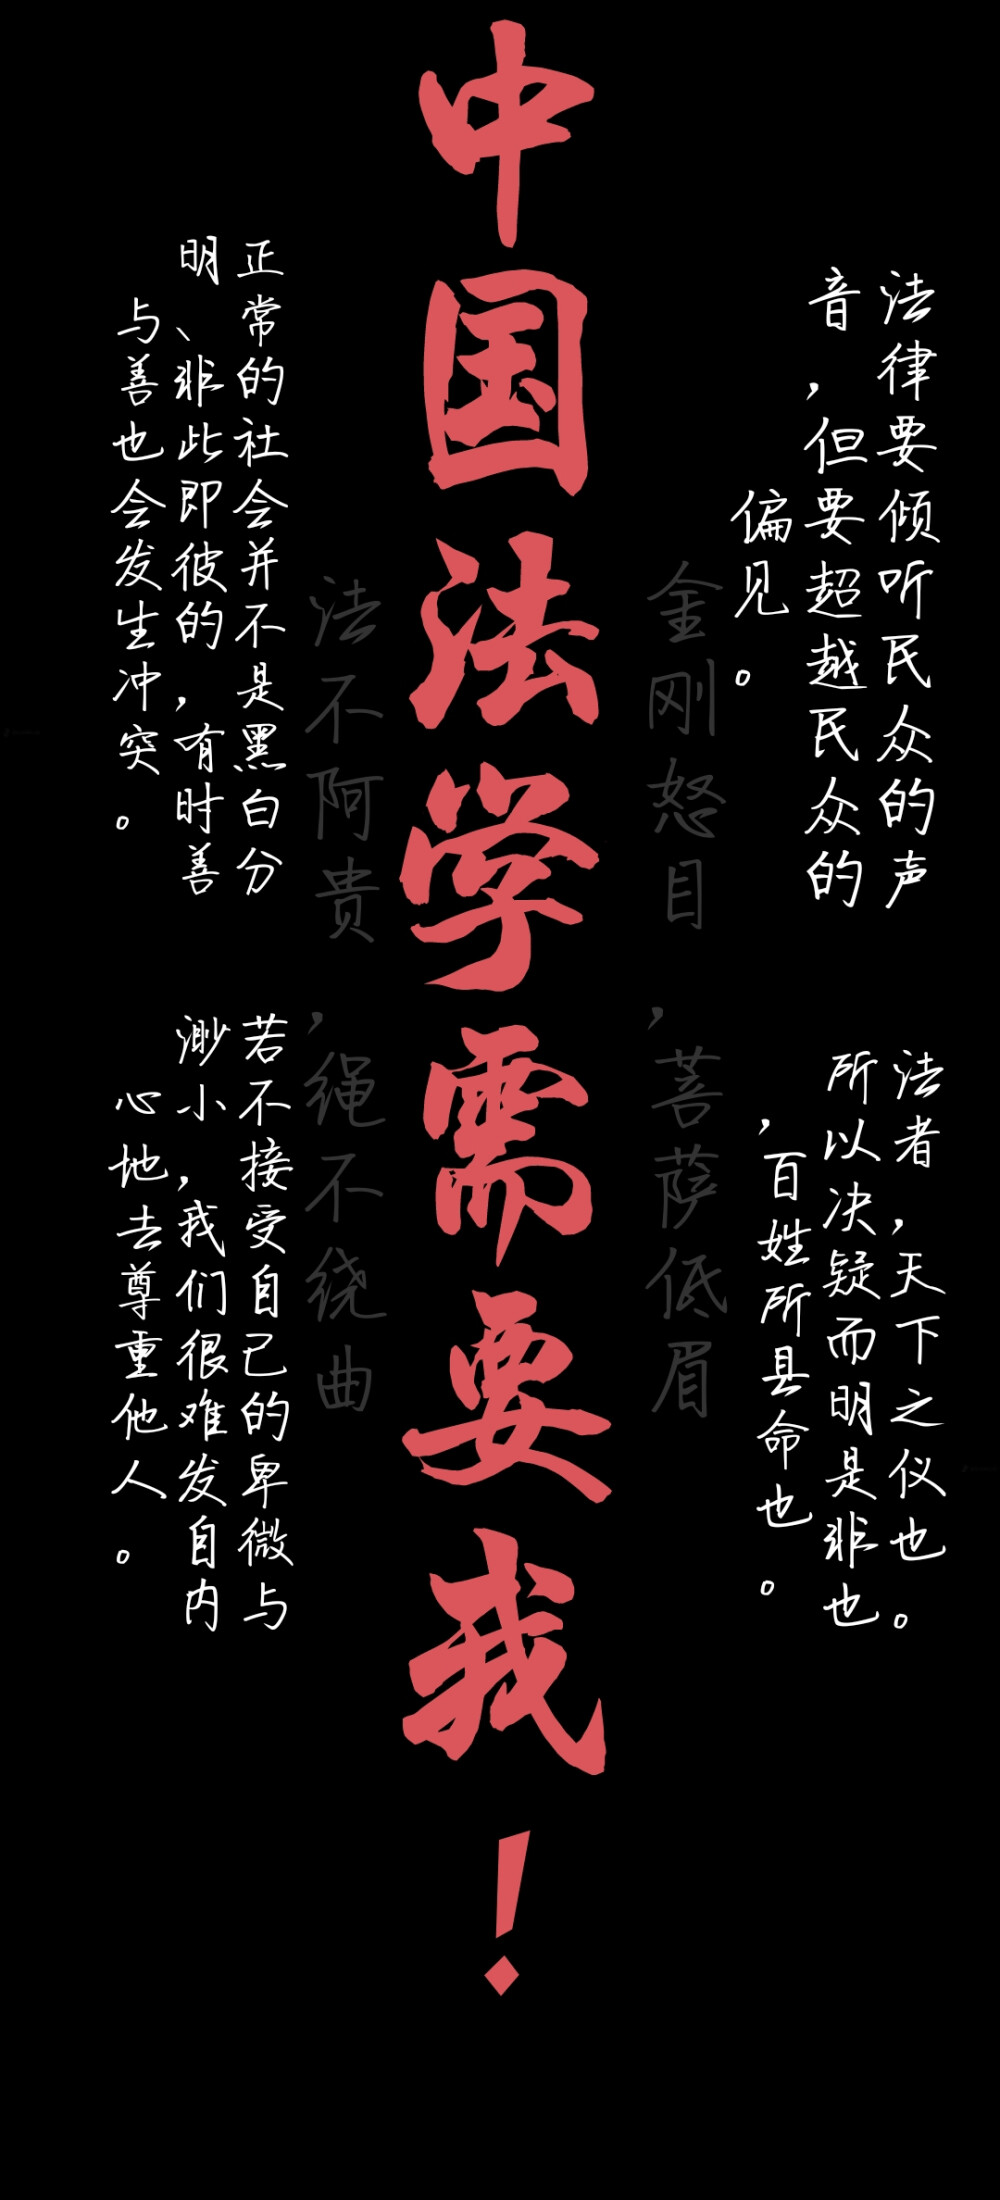 法律要倾听民众的声
音，但要超越民众的
偏见。
法者，天下之仪也。
所以决疑而明是非也
，百姓所县命也。
金刚怒目
，菩萨低眉
中国法学需要我！
法不阿贵
，绳不绕曲
正常的社会并不是黑白分
明、非此即彼的，有时善
与善也会发生冲突。
若不接受自己的卑微与
渺小，我们很难发自内
心地去尊重他人。